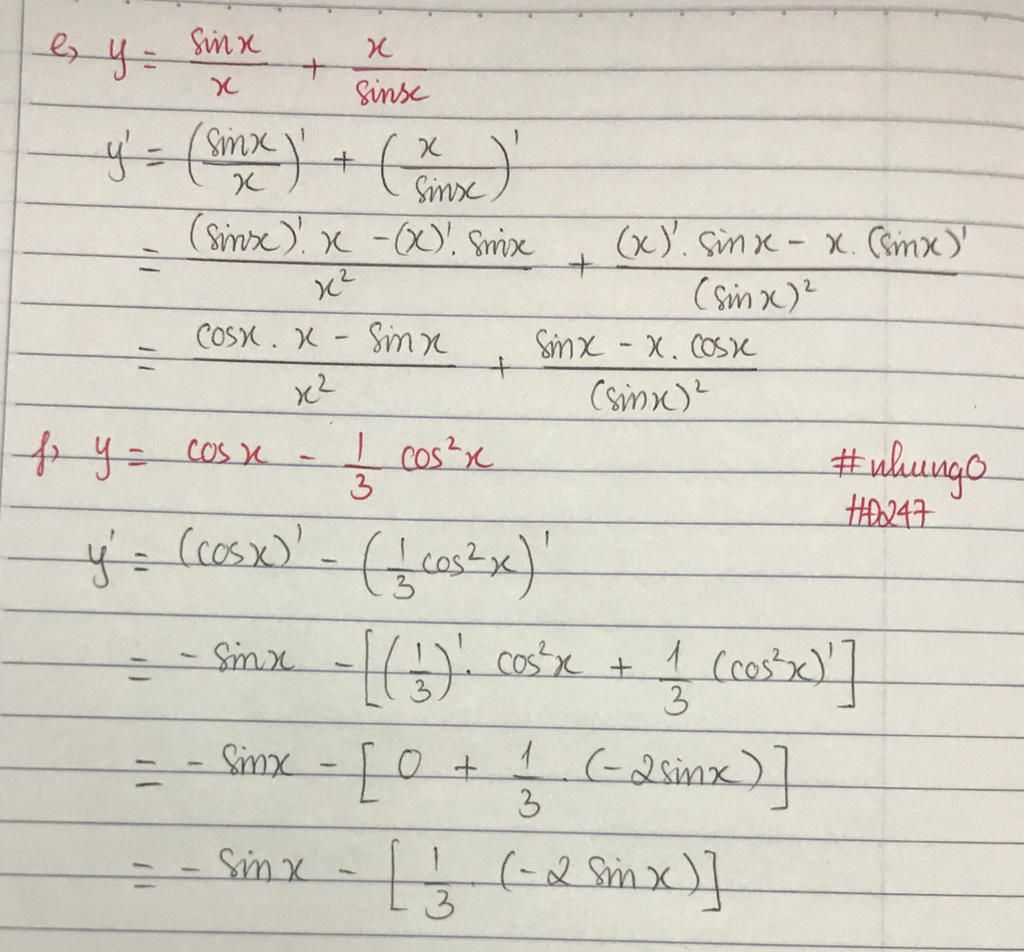 e, y = sinx/x + x/sinx
y' = (sinx/x)' + (x/sinx)'
= ((sinx)'. x - (x)'. sinx)/x² + ((x)'. sinx - x. (sinx)')/(sinx)²
= (cosx. x - sinx)/x² + (sinx - x. cosx)/(sinx)²
f, y = cosx - 1/3 cos²x
#nhung0
#D247
y' = (cosx)' - (1/3 cos²x)'
= - sinx - [(1/3)'. cos²x + 1/3 (cos²x)']
= - sinx - [0 + 1/3 . (-2sinx)]
= - sinx - [1/3 . (-2 sinx)]